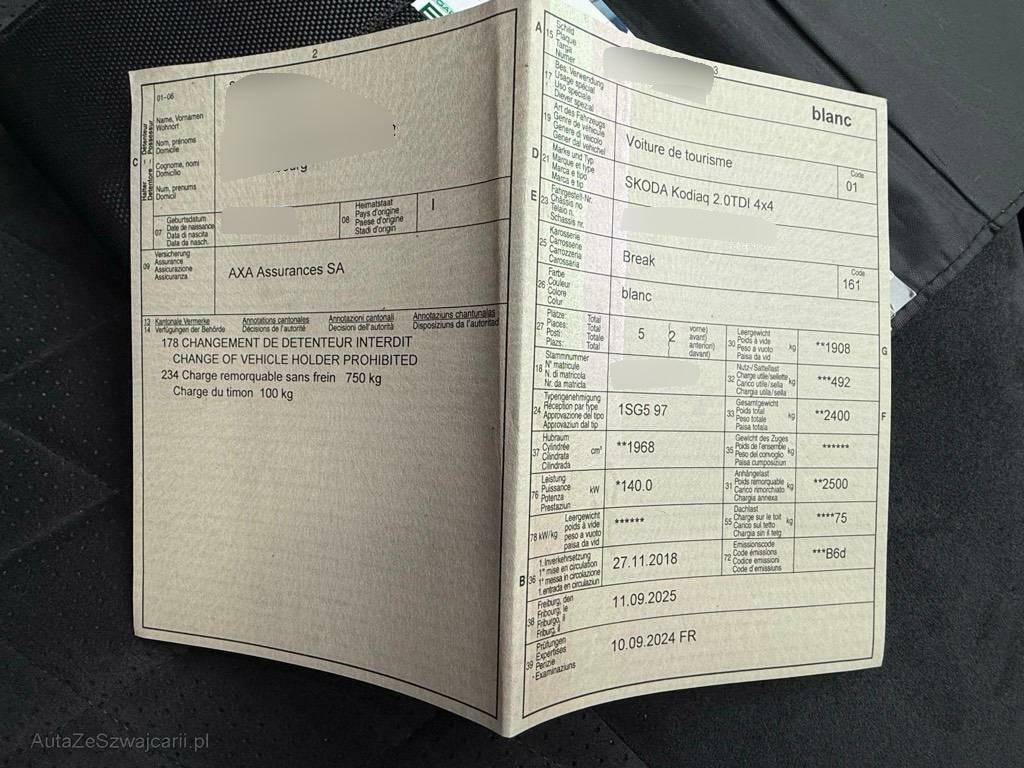 2
C
Halter – Détenteur
Detentore – Possessur
01-06
Name, Vornamen
Wohnort
Nom, prénoms
Domicile
Cognome, nomi
Domicilio
Num, prenums
Domicil
07
Geburtsdatum
Date de naissance
Data di nascita
Data da nasch.
08
Heimatstaat
Pays d'origine
Paese d'origine
Stadi d'origin
I
09
Versicherung
Assurance
Assicurazione
Assicuranza
AXA Assurances SA
13 Kantonale Vermerke Annotations cantonales Annotazioni cantonali Annotaziuns chantunalas
14 Verfügungen der Behörde Décisions de l'autorité Decisioni dell'autorità Disposiziuns da l'autoritad
178 CHANGEMENT DE DETENTEUR INTERDIT
CHANGE OF VEHICLE HOLDER PROHIBITED
234 Charge remorquable sans frein 750 kg
Charge du timon 100 kg
3
A
15
Schild
Plaque
Targa
Numer
blanc
17
Bes. Verwendung
Usage spécial
Uso speciale
Diever spezial
19
Art des Fahrzeugs
Genre de véhicule
Genere di veicolo
Gener dal vehichel
Voiture de tourisme
Code
01
D
21
Marke und Typ
Marque et type
Marca e tipo
Marca e tip
SKODA Kodiaq 2.0TDI 4x4
E
23
Fahrgestell-Nr.
Châssis no
Telaio n.
Schassis nr.
25
Karosserie
Carrosserie
Carrozzeria
Carossaria
Break
Code
161
26
Farbe
Couleur
Colore
Colur
blanc
27
Plätze: Total
Places: Total
Posti: Totale
Plazs: Total
5
(2
vorne)
avant)
anteriori)
davant)
30
Leergewicht
Poids à vide
Peso a vuoto
Paisa da vid
kg
**1908
G
18
Stammnummer
N° matricule
N. di matricola
Nr. da matricla
32
Nutz-/Sattellast
Charge utile/sellette
Carico utile/sella
Chargia utila/sella
kg
***492
24
Typengenehmigung
Réception par type
Approvazione del tipo
Approvaziun dal tip
1SG5 97
33
Gesamtgewicht
Poids total
Peso totale
Paisa totala
kg
**2400
F
37
Hubraum
Cylindrée
Cilindrata
Cilindrada
cm³
**1968
35
Gewicht des Zuges
Poids de l'ensemble
Peso del convoglio
Paisa cumposiziun
kg
******
76
Leistung
Puissance
Potenza
Prestaziun
kW
*140.0
31
Anhängelast
Poids remorquable
Carico rimorchiato
Chargia annexa
kg
**2500
78 kW/kg
Leergewicht
poids à vide
peso a vuoto
paisa da vid
******
55
Dachlast
Charge sur le toit
Carico sul tetto
Chargia sin il tetg
kg
****75
B
36
1. Inverkehrsetzung
1re mise en circulation
1a messa in circolazione
1. entrada en circulaziun
27.11.2018
72
Emissionscode
Code émissions
Codice emissioni
Code d'emissiuns
***B6d
38
Freiburg, den
Fribourg, le
Friburgo, il
Friburg, il
11.09.2025
39
Prüfungen
Expertises
Perizie
Examinaziuns
10.09.2024 FR
AutaZeSzwajcarii.pl